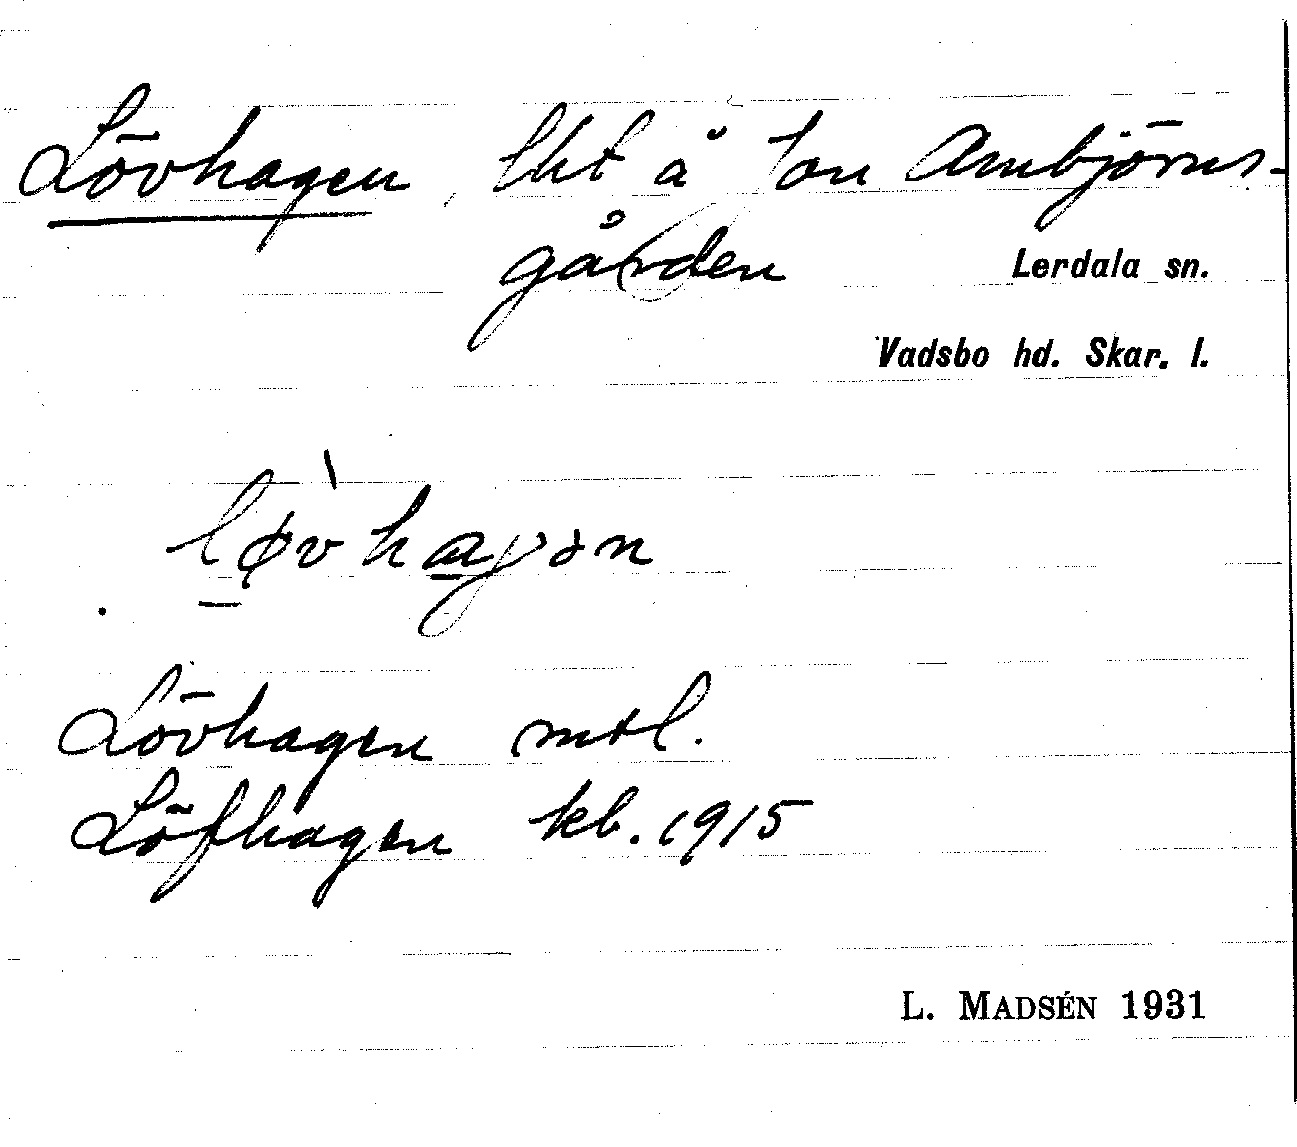 Lövhagen, lht å 1 on Ambjörns-
gården
Lerdala sn.
Vadsbo hd. Skar. l.
lø̀vhagən
Lövhagen mtl.
Löfhagen kb. 1915
L. MADSÉN 1931